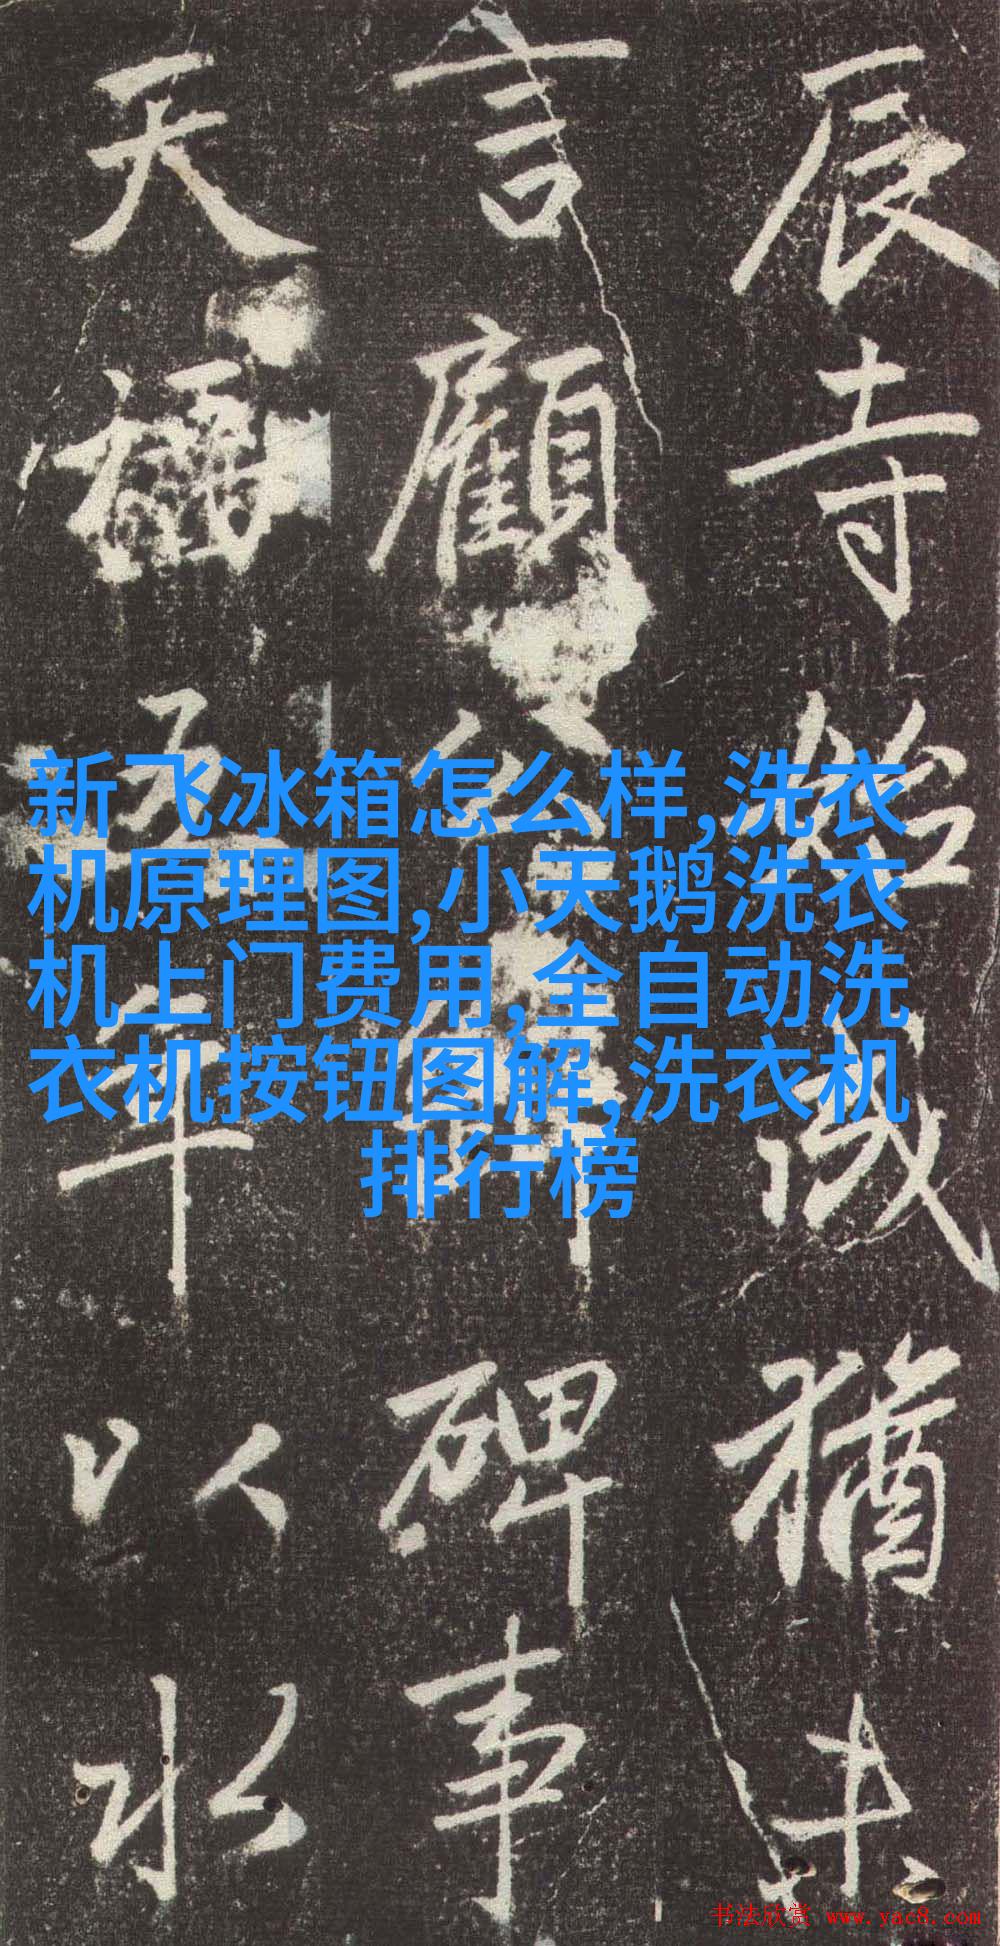 辰寺始成猶未
言顧
碑事
天福五年以水
新飞冰箱怎么样,洗衣
机原理图,小天鹅洗衣
机上门费用,全自动洗
衣机按钮图解,洗衣机
排行榜
书法欣赏 www.yac8.com